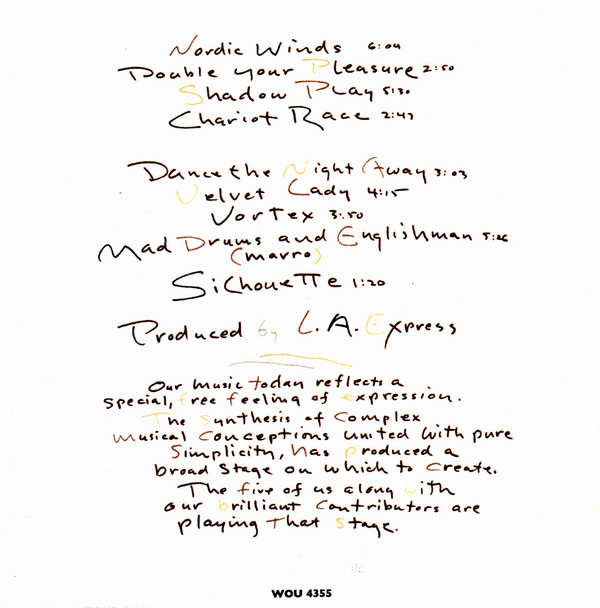 Nordic Winds 6:04
Double your Pleasure 2:50
Shadow Play 5:30
Chariot Race 2:47
Dance the Night Away 3:03
Velvet Lady 4:15
Vortex 3:50
Mad Drums and Englishman 5:26
(mavro)
Silhouette 1:20
Produced by L.A. Express
Our music today reflects a
special, free feeling of expression.
The synthesis of complex
musical conceptions united with pure
Simplicity, has produced a
broad stage on which to create.
The five of us along with
our brilliant contributors are
playing that stage.
WOU 4355